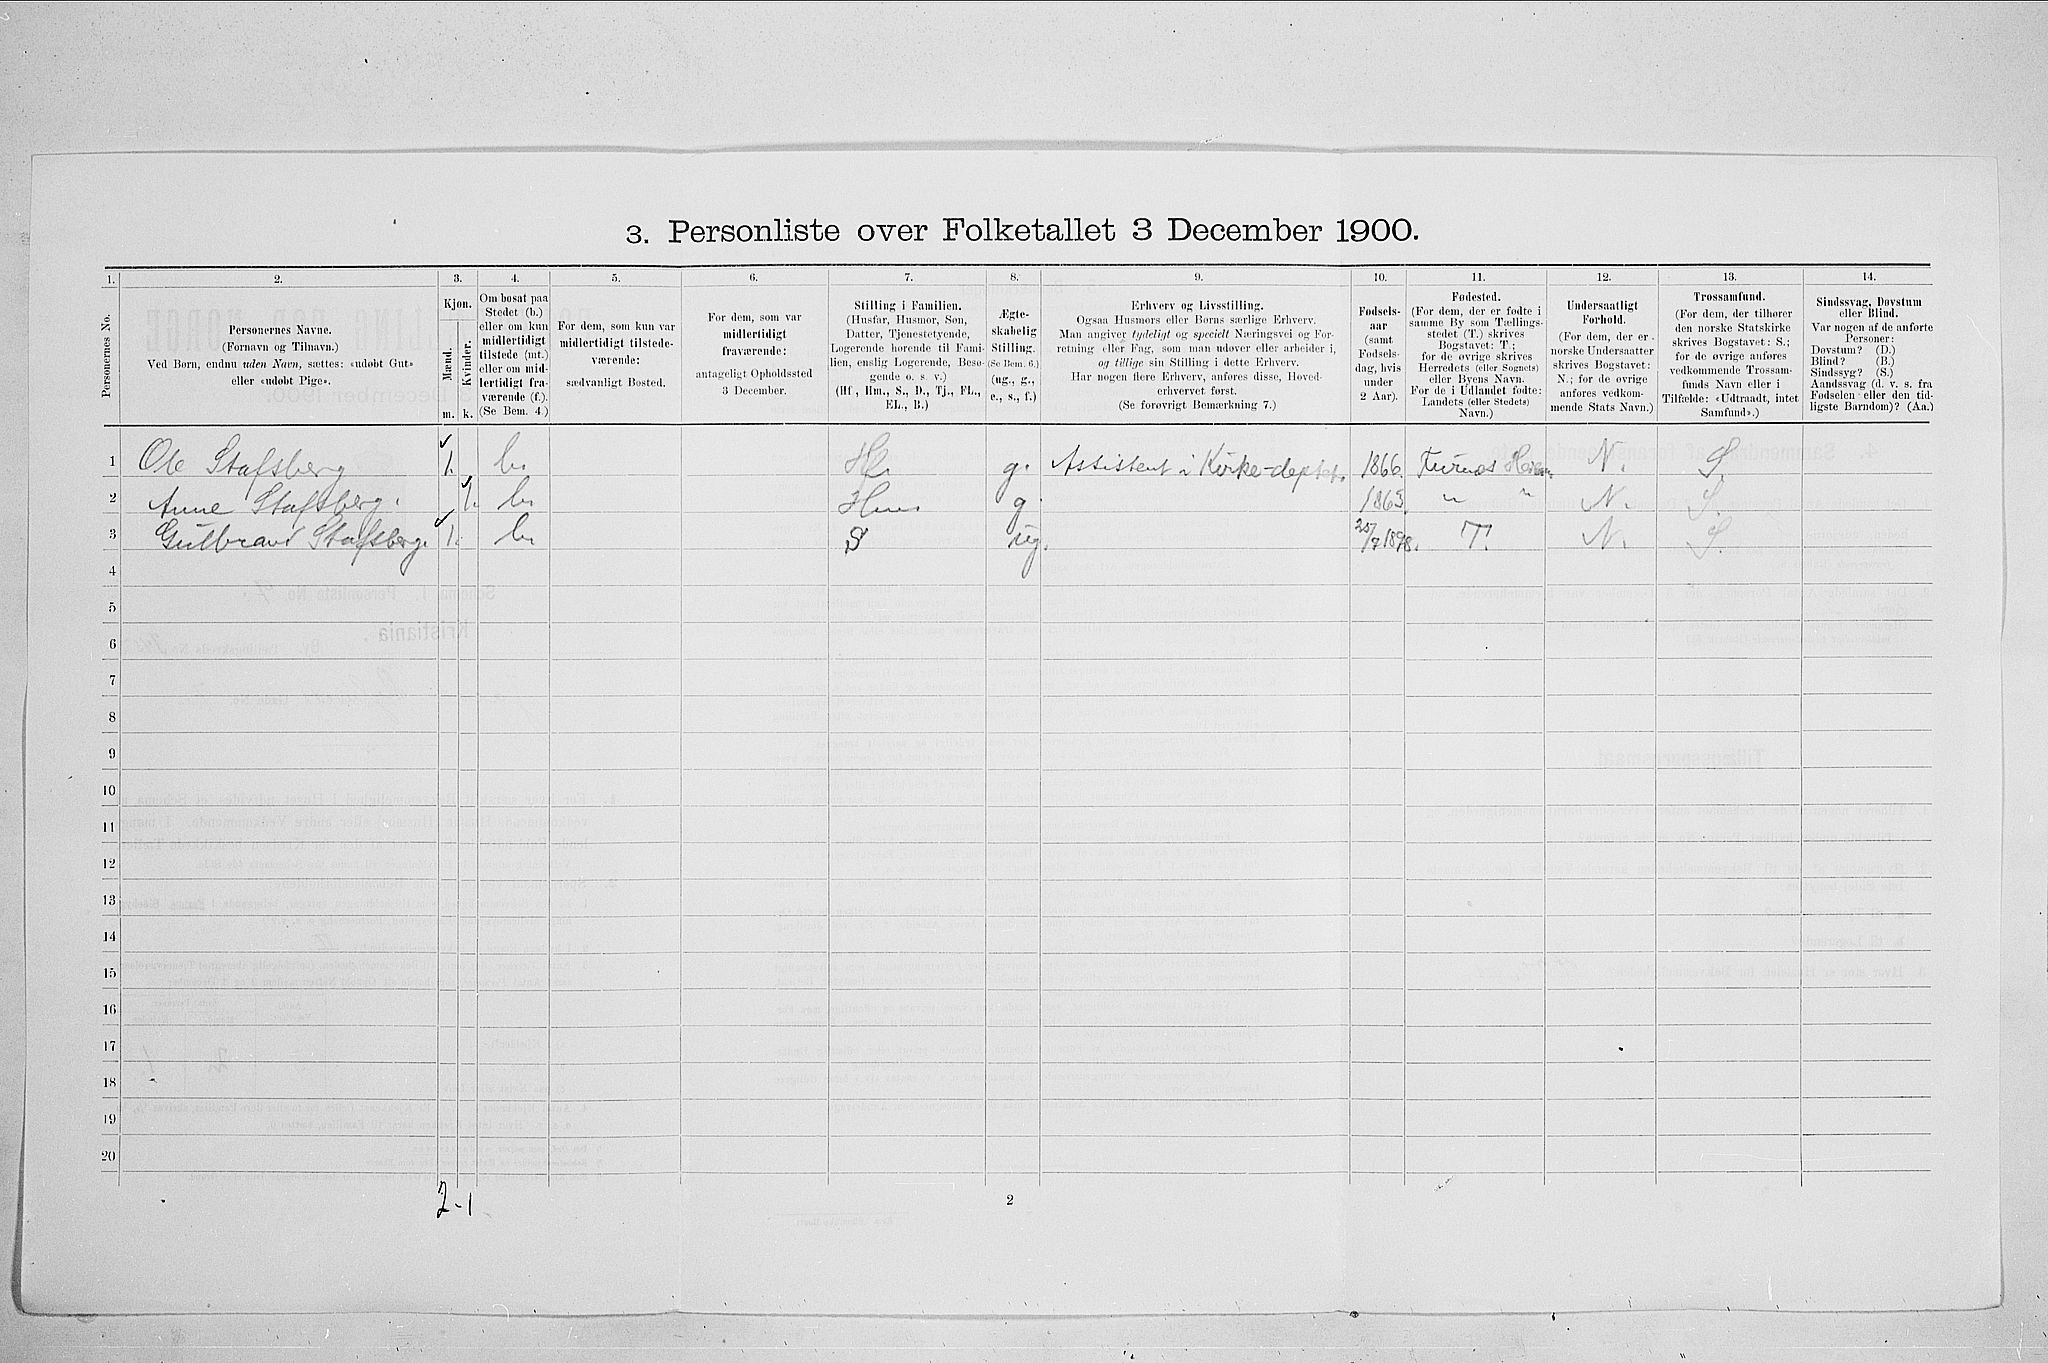 3. Personliste over Folketallet 3 December 1900.
1. 2. 3. 4. 5. 6. 7. 8. 9. 10. 11. 12. 13. 14.
Personernes No.
Personernes Navne.
(Fornavn og Tilnavn.)
Ved Børn, endnu uden Navn, sættes: «udøbt Gut»
eller «udøbt Pige».
Kjøn.
Mænd.
Kvinder.
m. k.
Om bosat paa
Stedet (b.)
eller om kun
midlertidigt
tilstede (mt.)
eller om mid-
lertidigt fra-
værende (f.).
(Se Bem. 4.)
For dem, som kun var
midlertidigt tilstede-
værende:
sædvanligt Bosted.
For dem, som var
midlertidigt
fraværende:
antageligt Opholdssted
3 December.
Stilling i Familien.
(Husfar, Husmor, Søn,
Datter, Tjenestetyende,
Logerende hørende til Fami-
lien, enslig Logerende, Besø-
gende o. s. v.)
(Hf., Hm., S., D., Tj., FL.,
EL., B.)
Ægte-
skabelig
Stilling.
(Se Bem. 6.)
(ug., g.,
e., s., f.)
Erhverv og Livsstilling.
Ogsaa Husmors eller Børns særlige Erhverv.
Man angiver tydeligt og specielt Næringsvei og For-
retning eller Fag, som man udøver eller arbeider i,
og tillige sin Stilling i dette Erhverv.
Har nogen flere Erhverv, anføres disse, Hoved-
erhvervet først.
(Se forøvrigt Bemærkning 7.)
Fødsels-
aar
(samt
Fødsels-
dag, hvis
under
2 Aar).
Fødested.
(For dem, der er fødte i
samme By som Tællings-
stedet (T.) skrives
Bogstavet: T.;
for de øvrige skrives
Herredets (eller Sognets)
eller Byens Navn.
For de i Udlandet fødte:
Landets (eller Stedets)
Navn.)
Undersaatligt
Forhold.
(For dem, der er
norske Undersaatter
skrives Bogstavet:
N.; for de øvrige
anføres vedkom-
mende Stats Navn.)
Trossamfund.
(For dem, der tilhører
den norske Statskirke
skrives Bogstavet: S.;
for de øvrige anføres
vedkommende Trossam-
funds Navn eller i
Tilfælde: «Udtraadt, intet
Samfund».)
Sindssvag, Døvstum
eller Blind.
Var nogen af de anførte
Personer:
Døvstum? (D.)
Blind? (B.)
Sindssyg? (S.)
Aandssvag (d. v. s. fra
Fødselen eller den tid-
ligste Barndom)? (Aa.)
1 Ole Stafsberg 1. b. Hf g. Assistent i Kirke-deptet. 1866. Furnæs N. S.
2 Anne Stafsberg. 1. b. Hm g. 1863. " " N. S.
3 Gulbrand Stafsberg. 1. b. S ug. 25/7 1898. T. N. S.
4
5
6
7
8
9
10
11
12
13
14
15
16
17
18
19
20
2-1
2